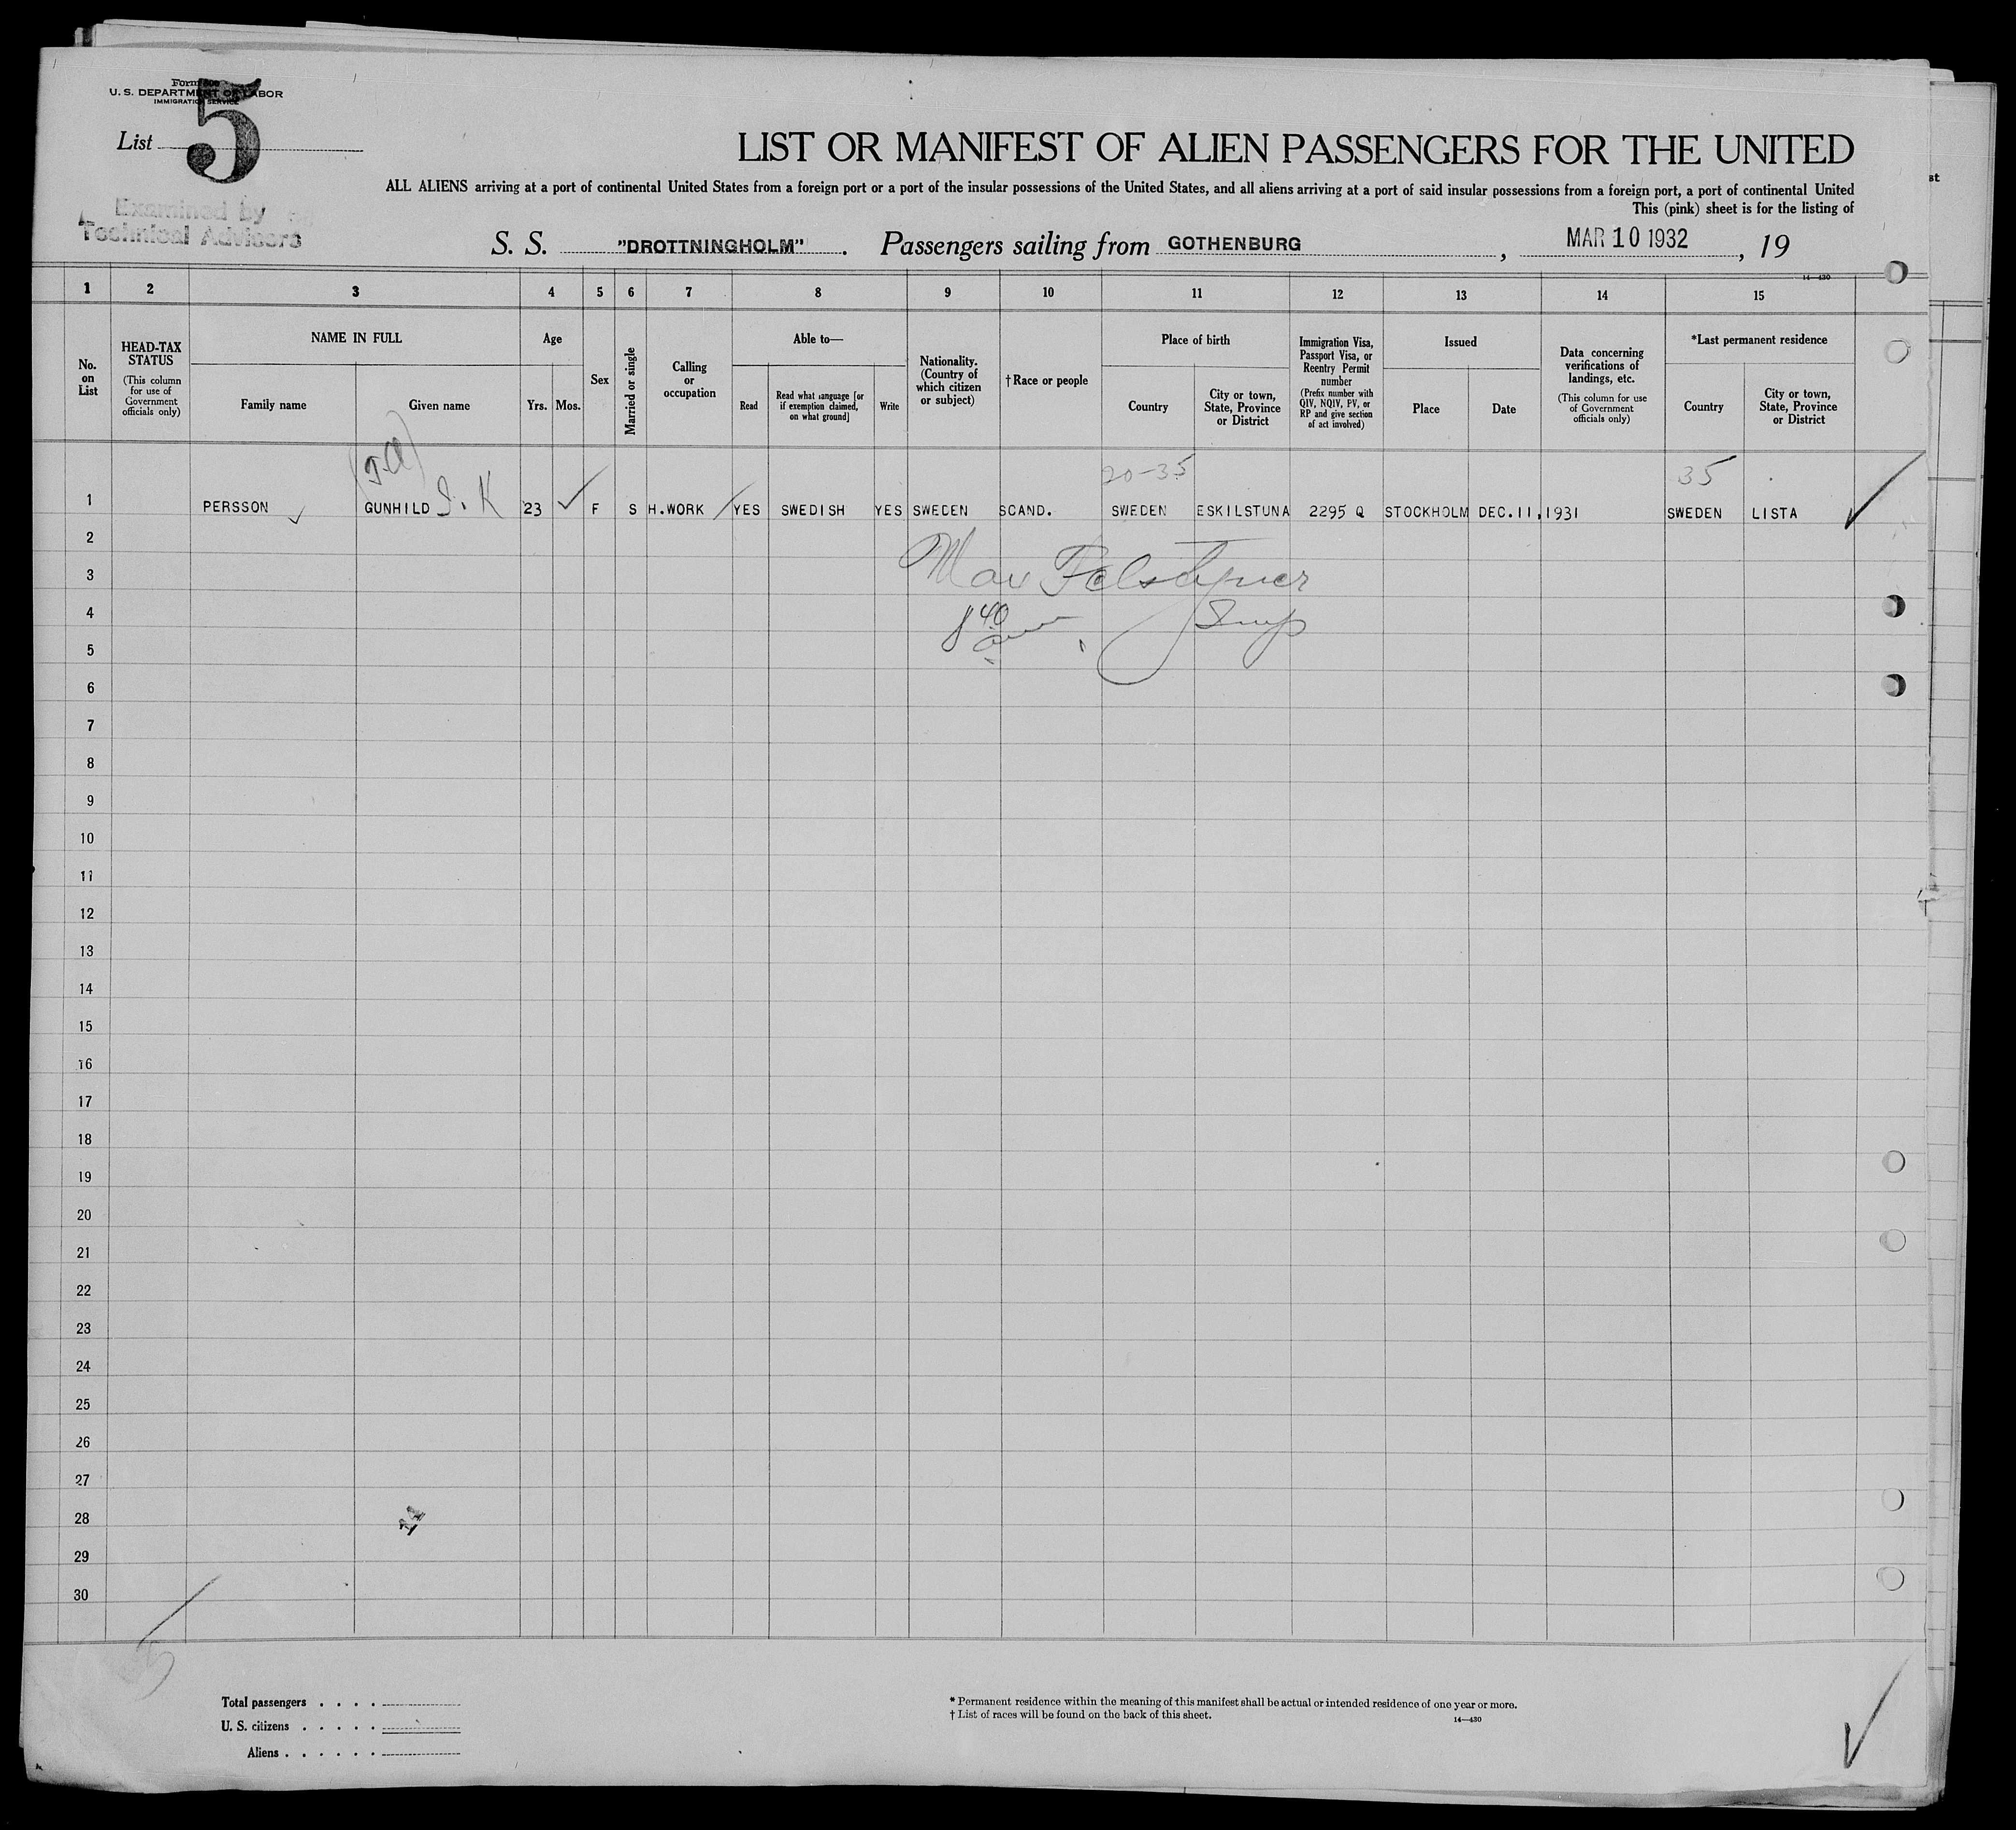 Form 500
U. S. DEPARTMENT OF LABOR
IMMIGRATION SERVICE
List 5
LIST OR MANIFEST OF ALIEN PASSENGERS FOR THE UNITED
ALL ALIENS arriving at a port of continental United States from a foreign port or a port of the insular possessions of the United States, and all aliens arriving at a port of said insular possessions from a foreign port, a port of continental United
This (pink) sheet is for the listing of
Examined by
Technical Advisors
S. S. "DROTTNINGHOLM". Passengers sailing from GOTHENBURG, MAR 10 1932, 19
14—430
1 2 3 4 5 6 7 8 9 10 11 12 13 14 15
No. on List
HEAD-TAX STATUS
(This column for use of Government officials only)
NAME IN FULL
Family name
Given name
Age
Yrs.
Mos.
Sex
Married or single
Calling or occupation
Able to—
Read
Read what language [or if exemption claimed, on what ground]
Write
Nationality. (Country of which citizen or subject)
†Race or people
Place of birth
Country
City or town, State, Province or District
Immigration Visa, Passport Visa, or Reentry Permit number
(Prefix number with QIV, NQIV, PV, or RP and give section of act involved)
Issued
Place
Date
Data concerning verifications of landings, etc.
(This column for use of Government officials only)
*Last permanent residence
Country
City or town, State, Province or District
20-35 35
1 PERSSON GUNHILD S. K 23 F S H.WORK YES SWEDISH YES SWEDEN SCAND. SWEDEN ESKILSTUNA 2295 Q STOCKHOLM DEC.11,1931 SWEDEN LISTA
2
3
4 8 40 Insp
5
6
7
8
9
10
11
12
13
14
15
16
17
18
19
20
21
22
23
24
25
26
27
28
29
30
Total passengers . . . .
U. S. citizens . . . . .
Aliens . . . . . .
* Permanent residence within the meaning of this manifest shall be actual or intended residence of one year or more.
† List of races will be found on the back of this sheet.
14—430
st